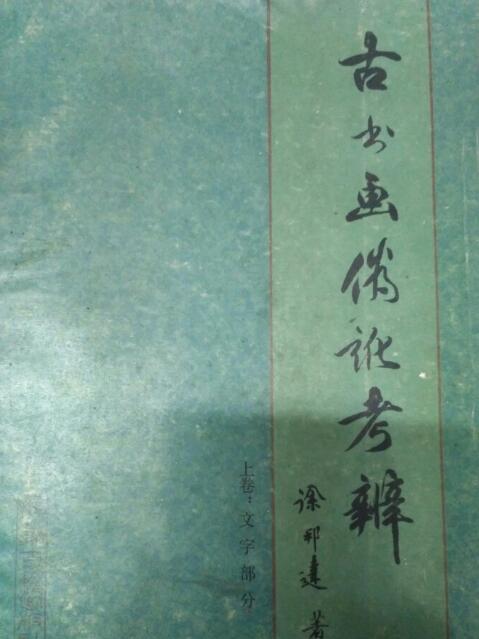 古书画伪讹考辨
徐邦达 著
上卷：文字部分